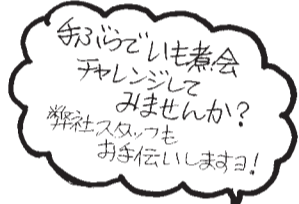 手ぶらでいも煮会
チャレンジして
みませんか？
弊社スタッフも
お手伝いしますヨ！